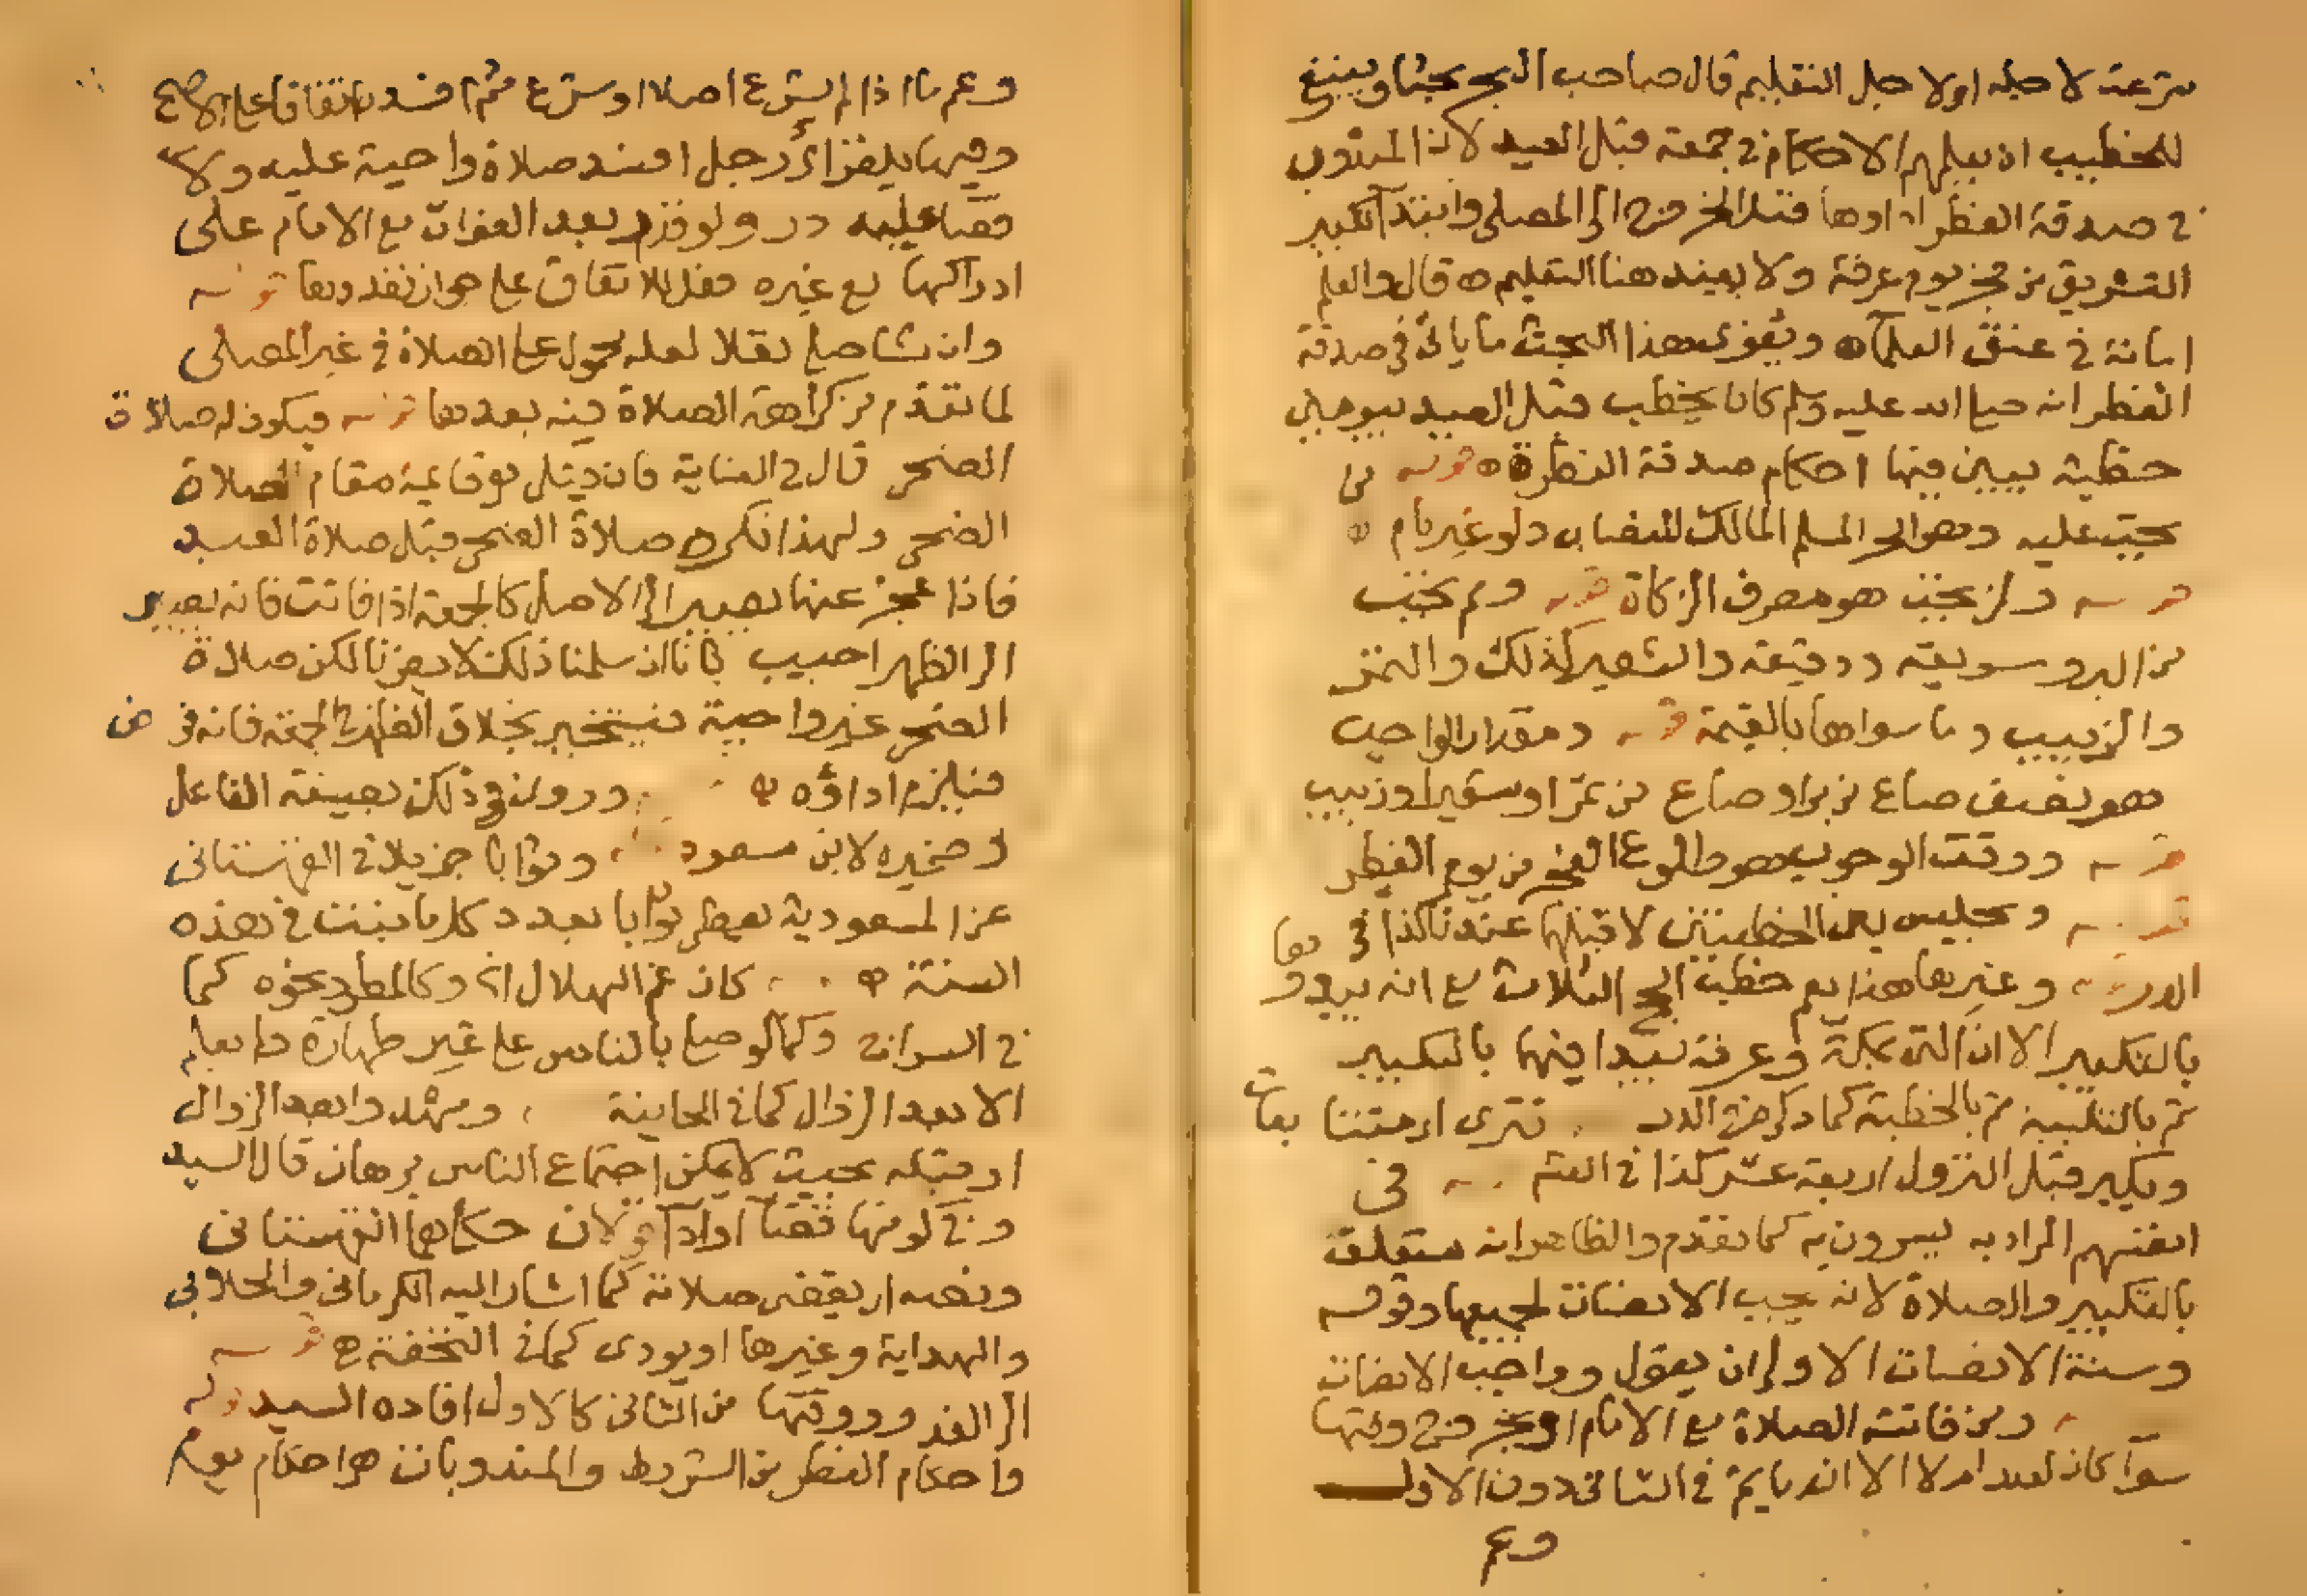 شرعت لاجله او لاجل التعليم قال صاحب البحر بحثا وينبغي
للخطيب ان يعلمهم الاحكام في جمعة قبل العيد لان المندوب
في صدقة الفطر اداوها قبل الخروج الى المصلى وابتدآ تكبير
التشريق من فجر يوم عرفة ولا يفيد هنا التعليم ه قال والعلم
امانة في عنق العلمآ ه ويقوى هذا البحث ما ياتي في صدقة
الفطر انه صلى الله عليه وسلم كان يخطب قبل العيد بيومين
خطبة يبين فيها احكام صدقة الفطرة ه قوله من
تجب عليه وهو الحر المسلم المالك للنصاب ولو غير نام ه
قوله ولمن تجب هو مصرف الزكاة قوله ومم تجب
من البر وسويقه ودقيقه والشعير كذلك والتمر
والزبيب وما سواها بالقيمة قوله ومقدار الواجب
هو نصف صاع من بر او صاع من تمر او شعير او زبيب
قوله ووقت الوجوب هو طلوع الفجر من يوم الفطر
قوله ويجلس بين الخطبتين لا قبلها عندنا كذا في
الدر وغيرها هذا يعم خطب الحج الثلاث مع انه يبدو
بالتكبير الا ان التي بمكة وعرفة يبدا فيها بالتكبير
ثم بالتلبية ثم بالخطبة كما ذكره في الدر
ويكبر قبل النزول اربعة عشر كذا في في
انفسهم المراد به يسرون به كما تقدم والظاهر انه متعلق
بالتكبير والصلاة لانه يجب الانصات لجميعها وقوله
وسنة الانصات الاولى ان يقول وواجب الانصات
ومن فاتته الصلاة مع الامام او بخروج وقتها
سوآ كان لعذر ام لا الا انه يأثم في الثاني دون الاول
وعم
وعم ما اذا لم يشرع اصلا او شرع ثم افسد اتفاقا على الاصح
وفيها يلغز اي رجل افسد صلاة واجبة عليه ولا
قضا عليه در ولو قدر بعد الفوات مع الامام على
ادراكها مع غيره فعل للاتفاق على جواز تعددها قوله
وان شا صلى نفلا لعله محمول على الصلاة في غير المصلى
لما تقدم من كراهة الصلاة فيه بعدها قوله فيكون له صلاة
الضحى قال في العناية فان قيل هو قايمة مقام الصلاة
الضحى ولهذا تكره صلاة الضحى قبل صلاة العيد
فاذا عجز عنها يصير الى الاصل كالجمعة اذا فاتت فانه يصير
الى الظهر اجيب بانا ان سلمنا ذلك لا يضرنا لكن صلاة
الضحى غير واجبة فيتخير بخلاف الظهر في الجمعة فانه فرض
فيلزم اداؤه ه وروى ذلك بصيغة الفاعل
وضميره لابن مسعود وثوابا جزيلا في القهستاني
عن المسعودية يعطى ثوابا بعدد كل ما نبت في هذه
السنة ه كان غم الهلال اي وكالمطر ونحوه كما
في السراج وكما لو صلى بالناس على غير طهارة ولم يعلم
الا بعد الزوال كما في الخانية وشهدوا بعد الزوال
او قبله بحيث لا يمكن اجتماع الناس برهان قال السيد
وفي كونها قضآ او ادآ قولان حكاهما القهستاني
ونصه اي يقضى صلاته كما اشار اليه الكرماني والجلابي
والهداية وغيرها او يودى كما في التحفة ه قوله
الى الغد ووقتها من الثاني كالاول افاده السيد قوله
واحكام الفطر من الشروط والمندوبات هو احكام